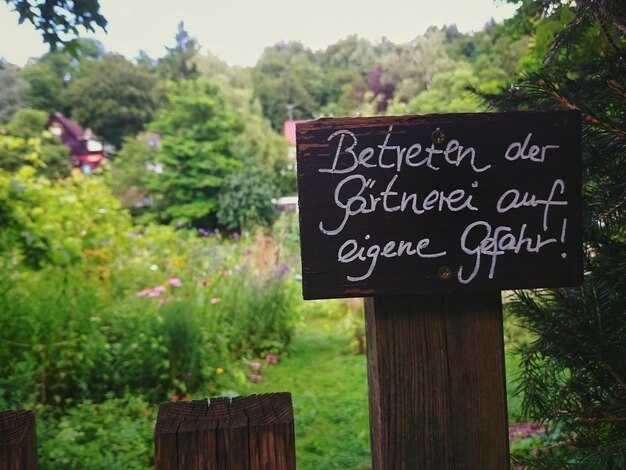 Betreten der
Gärtnerei auf
eigene Gefahr!